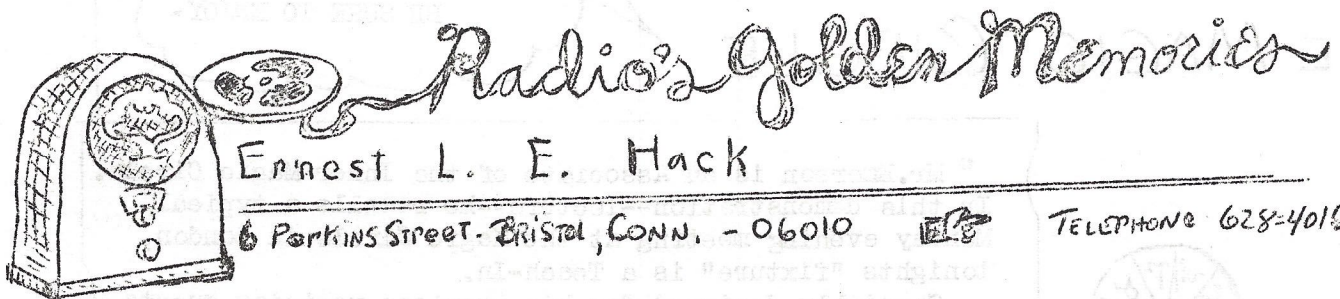 Radio's Golden Memories
Ernest L. E. Hack
6 Perkins Street. BRISTOL, CONN. - 06010 TELEPHONE